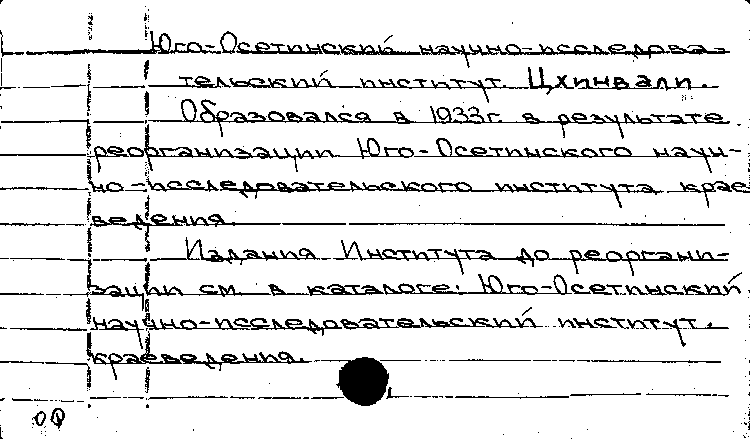 Юго-Осетинский научно-исследова-
тельский институт. Цхинвали.
Образовался в 1933г. в результате
реорганизации Юго-Осетинского науч-
но-исследовательского института крае
ведения.
Издания Института до реоргани-
зации см. в каталоге: Юго-Осетинский
научно-исследовательский институт.
краеведения.